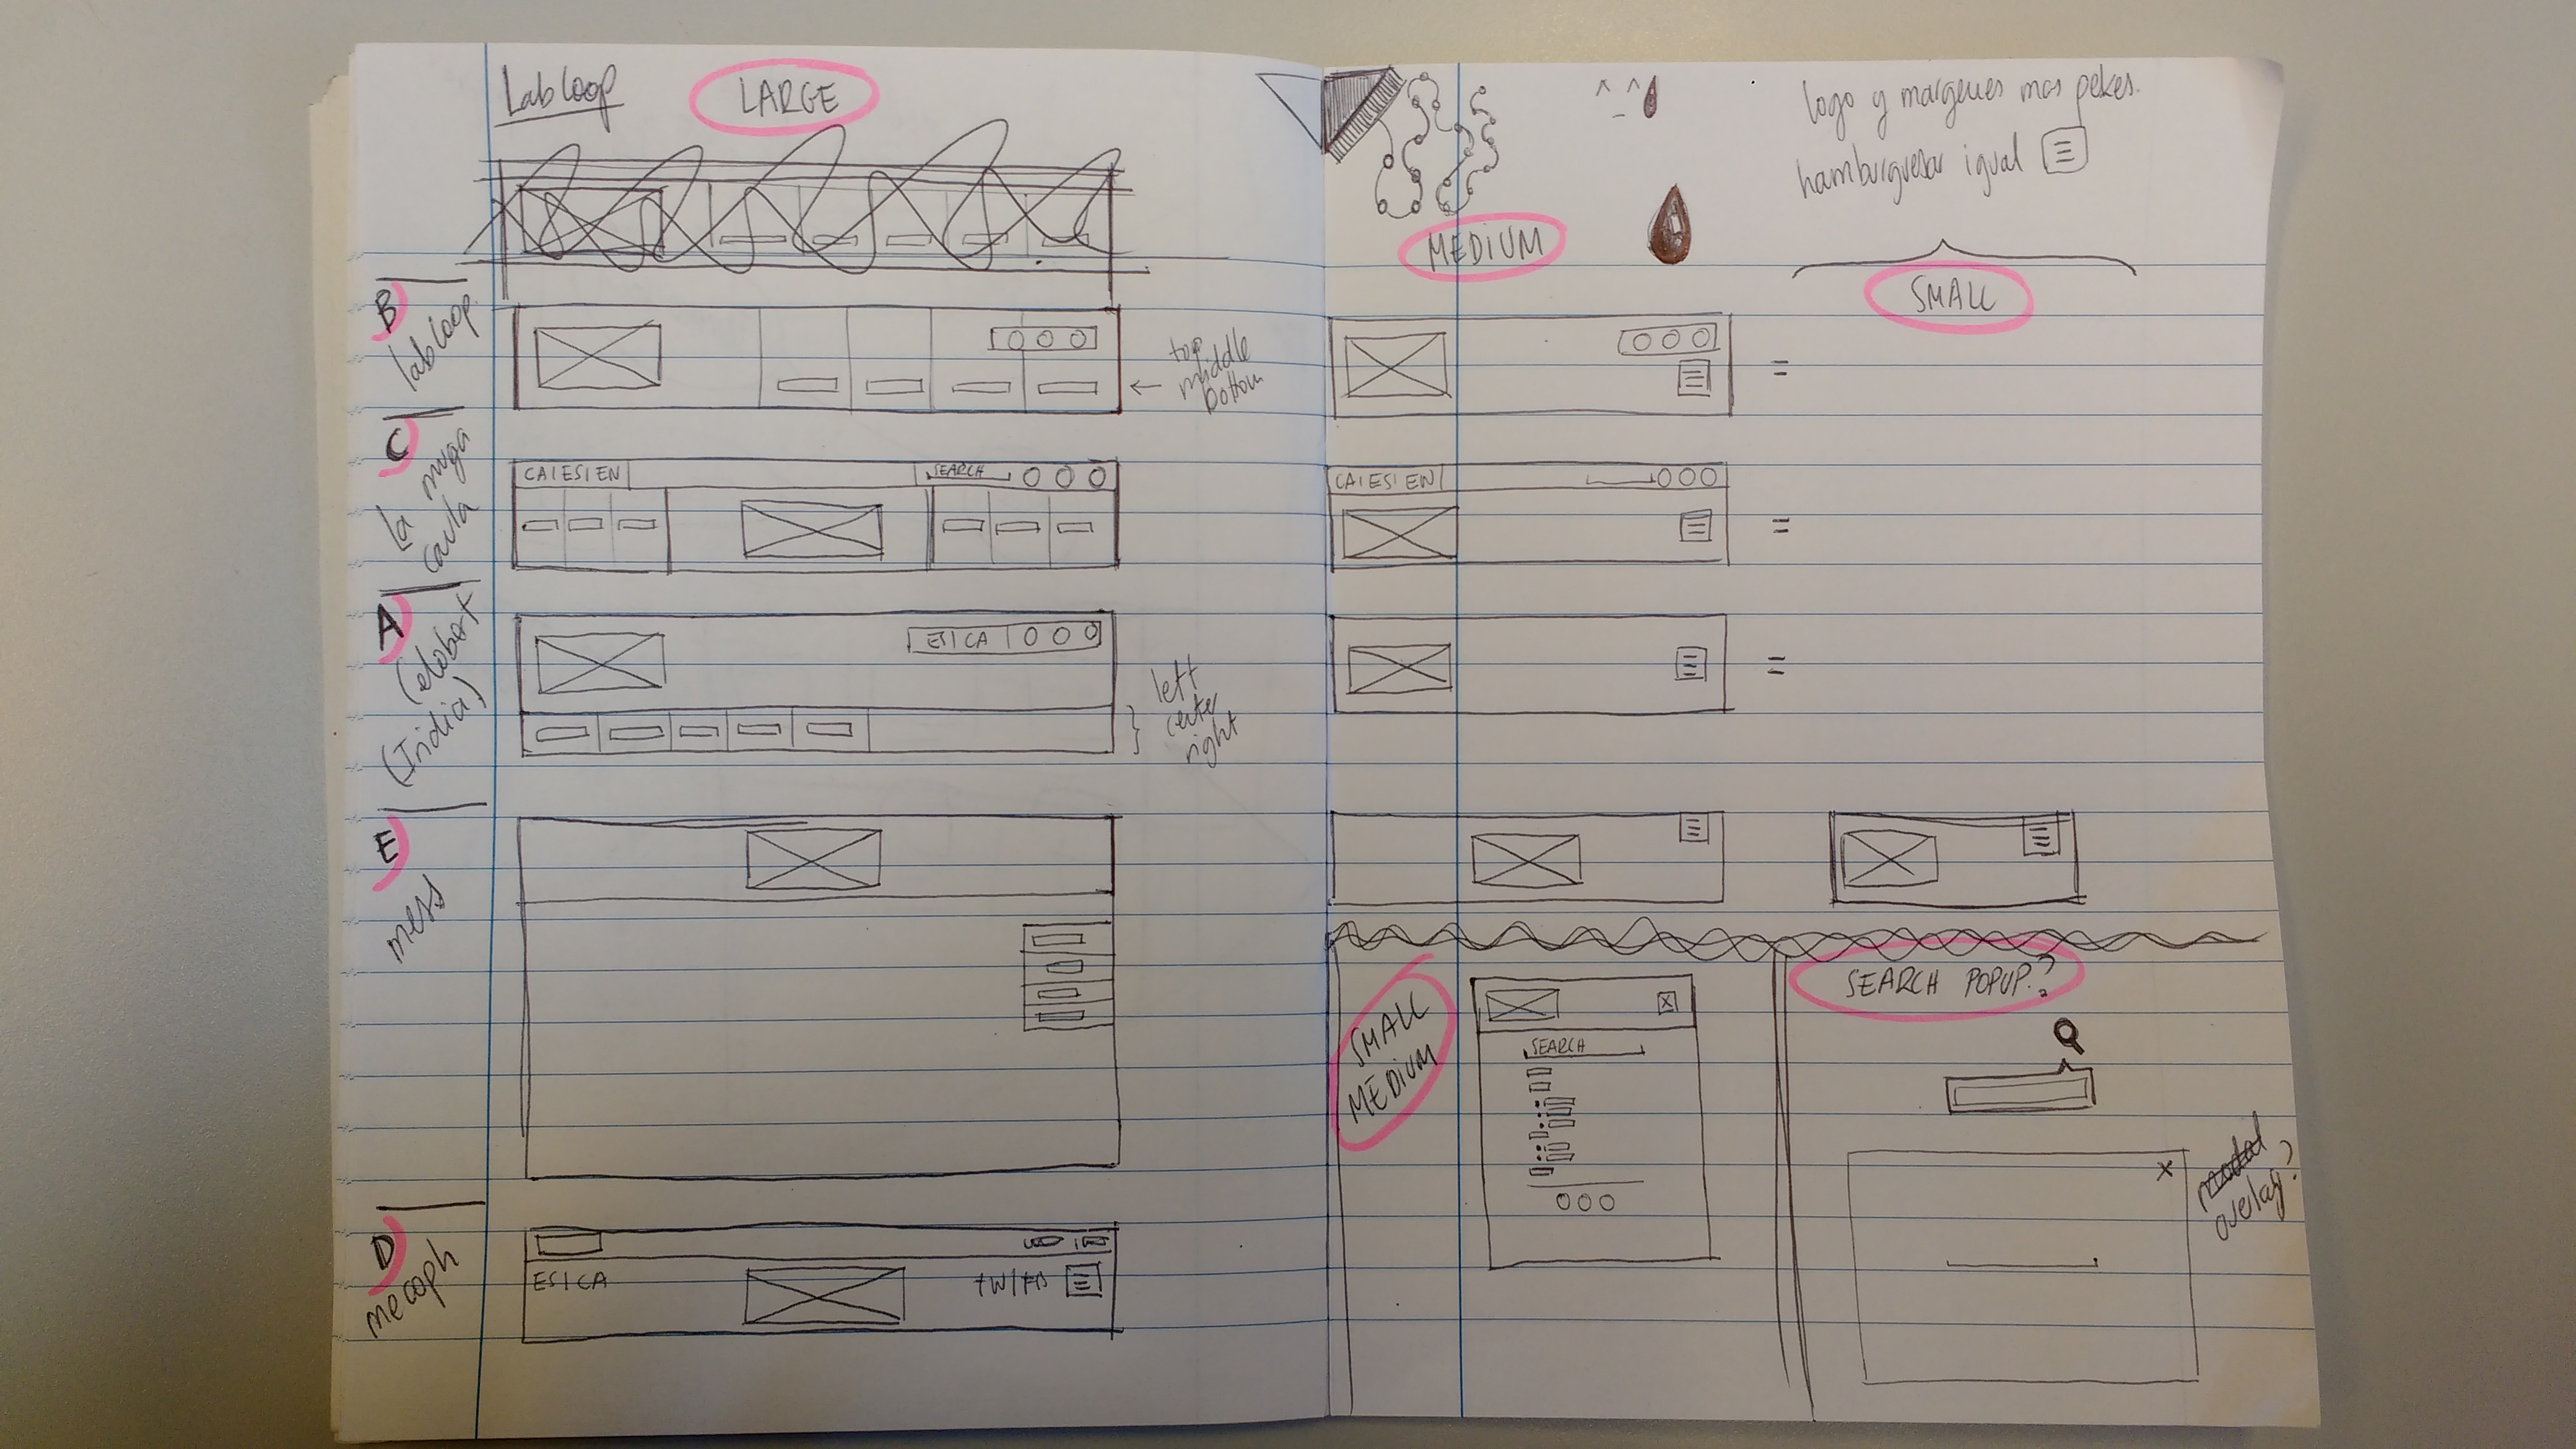 Lab loop
LARGE
B
lab loop
top
middle
bottom
C
la muga
caula
CA|ES|EN
SEARCH
A
(Iridia)
ES|CA
left
center
right
E
mess
D
mecoph
ES|CA
TW/FB
logo y margenes mas pekes.
hamburguesa igual
MEDIUM
SMALL
=
CA|ES|EN
=
=
SMALL
MEDIUM
SEARCH
X
SEARCH POPUP?
X
overlay?